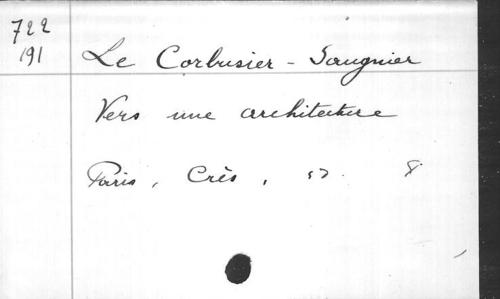 722
191
Le Corbusier - Saugnier
Vers une architecture
Paris, Crès, s d. 8